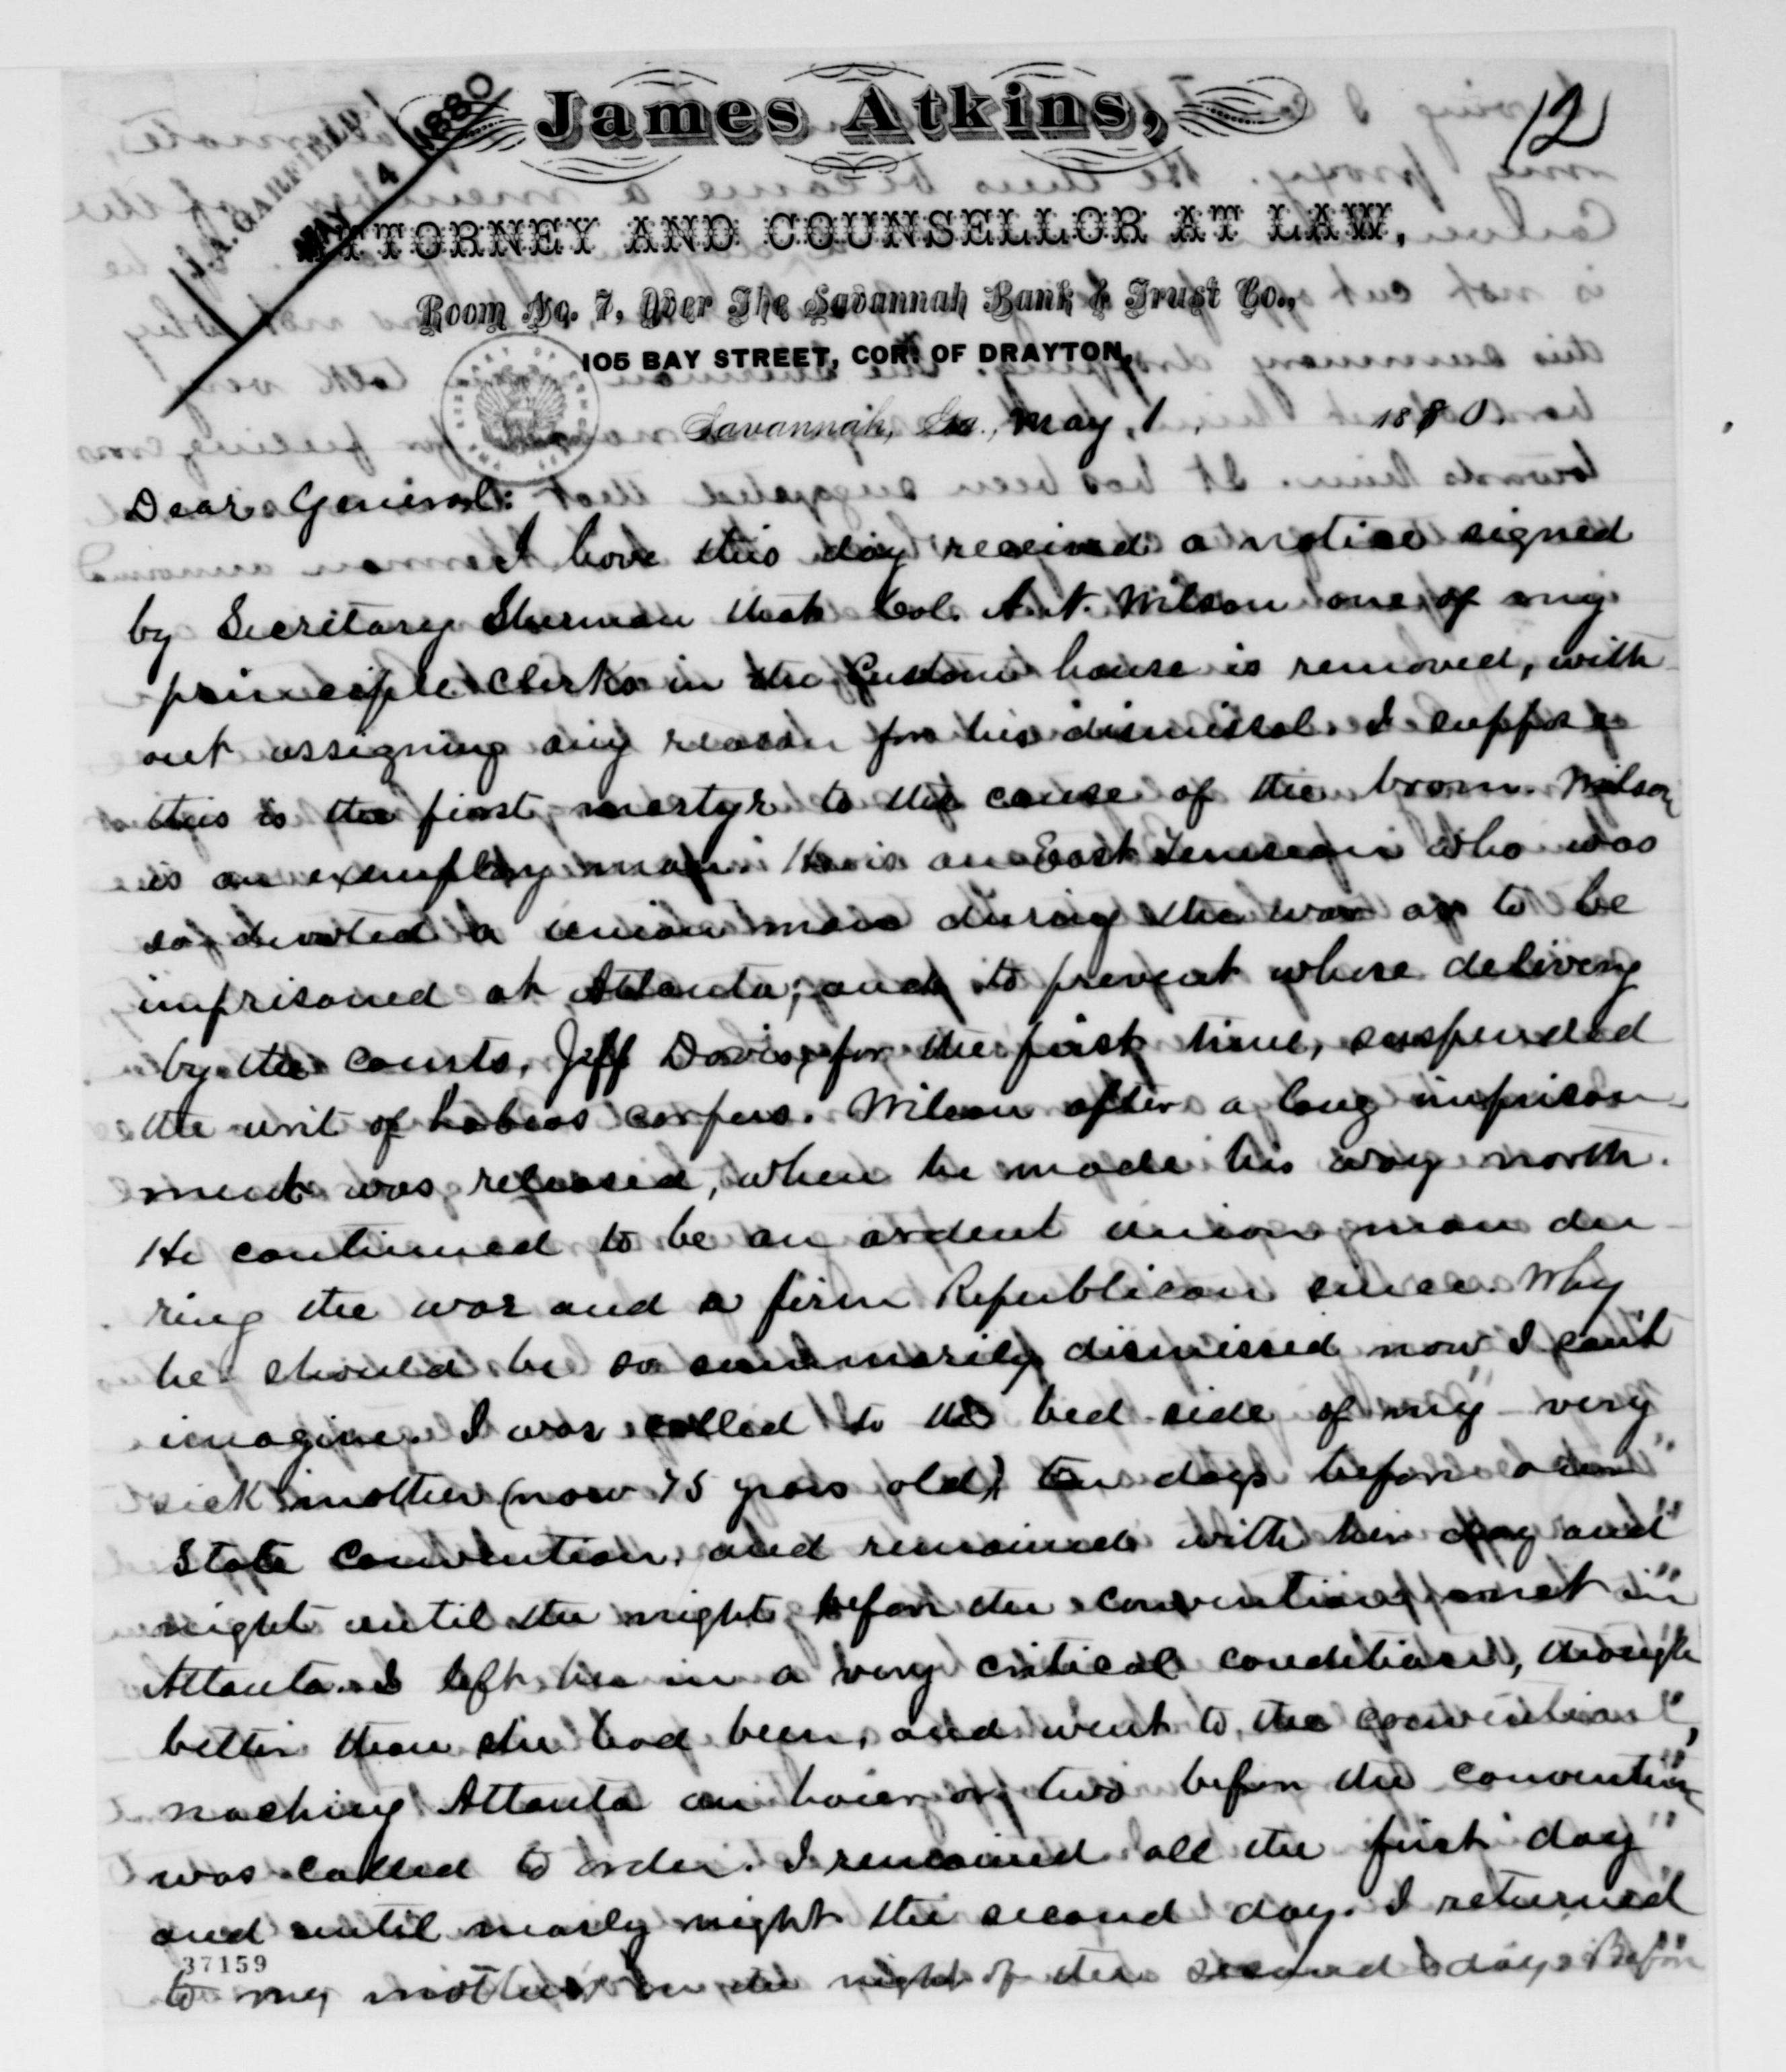 James Atkins,
12
J. A. GARFIELD
MAY 4 1880
ATTORNEY AND COUNSELLOR AT LAW,
Room No. 7, Over The Savannah Bank & Trust Co.,
105 BAY STREET, COR. OF DRAYTON,
Savannah, Ga., May, 1, 1880.
Dear General:
I have this day received a notice signed
by Secretary Sherman that Col. A. N. Wilson one of my
principle clerks in the Custom house is removed, with
out assigning any reason for his dismissal. I suppose
this is the first martyr to the cause of the boom. Wilson
is an exemplary man. He is an East Tennesean who was
so devoted a union man during the war as to be
imprisoned at Atlanta, and to prevent whose delivery
by the courts, Jeff Davis, for the first time, suspended
the writ of habeas corpus. Wilson after a long imprison
ment was released, when he made his way north.
He continued to be an ardent union man du
ring the war and a firm Republican since. Why
he should be so summarily dismissed now I can't
imagine. I was called to the bed side of my very
sick mother (now 75 years old) ten days before our
State Convention, and remained with her day and
night until the night before the convention met in
Atlanta. I left her in a very critical condition, though
better than she had been, and went to the convention,
reaching Atlanta an hour or two before the convention
was called to order. I remained all the first day
and until nearly night the second day. I returned
37159
to my mother on the night of the second day. Before